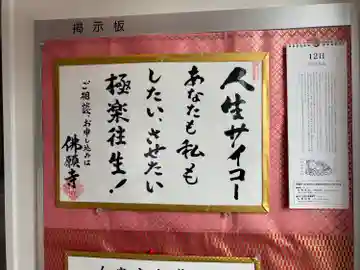 掲示板
人生サイコー
あなたも私も
したい、させたい
極楽往生!
ご相談、お申し込みは
佛願寺
12日